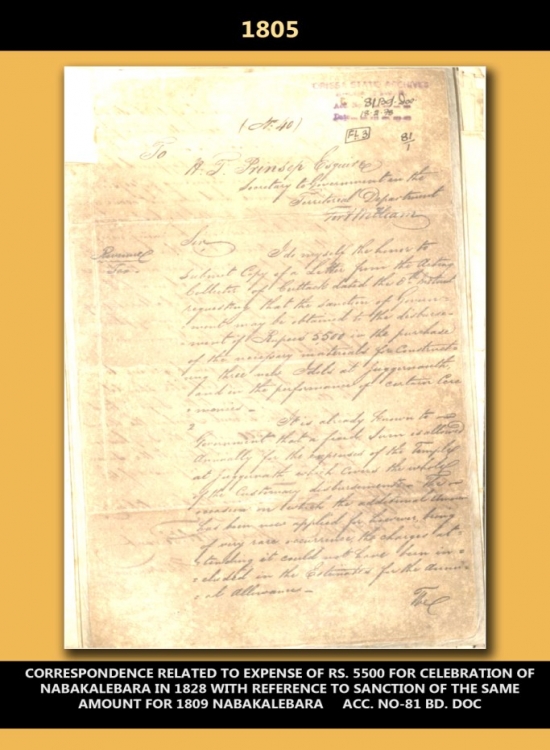 1805
ORISSA STATE ARCHIVES
81 Bd. Doc
(No. 40)
Fl. 3
81
1
To
H. T. Prinsep Esquire
Secretary to Government in the
Territorial Department
Fort William
Revenue
Sir,
I do myself the honor to
submit Copy of a Letter from the Acting
Collector of Cuttack dated the 6th Instant
requesting that the sanction of Govern-
ment may be obtained to the disburse-
ment of Rupees 5500 in the purchase
of the necessary materials for Construct-
ing three new Idols at Juggernauth,
and in the performance of certain Cere
monies -
2
It is already known to
Government that a fixed Sum is allowed
Annually for the expenses of the Temple
at Juggernath which covers the whole
of the Customary disbursements. The
occasion on which the additional
has been now applied for however being
of very rare occurrence the charges at
tending it could not have been in-
cluded in the Estimates for the Annu-
al Allowances -
The
CORRESPONDENCE RELATED TO EXPENSE OF RS. 5500 FOR CELEBRATION OF
NABAKALEBARA IN 1828 WITH REFERENCE TO SANCTION OF THE SAME
AMOUNT FOR 1809 NABAKALEBARA ACC. NO-81 BD. DOC